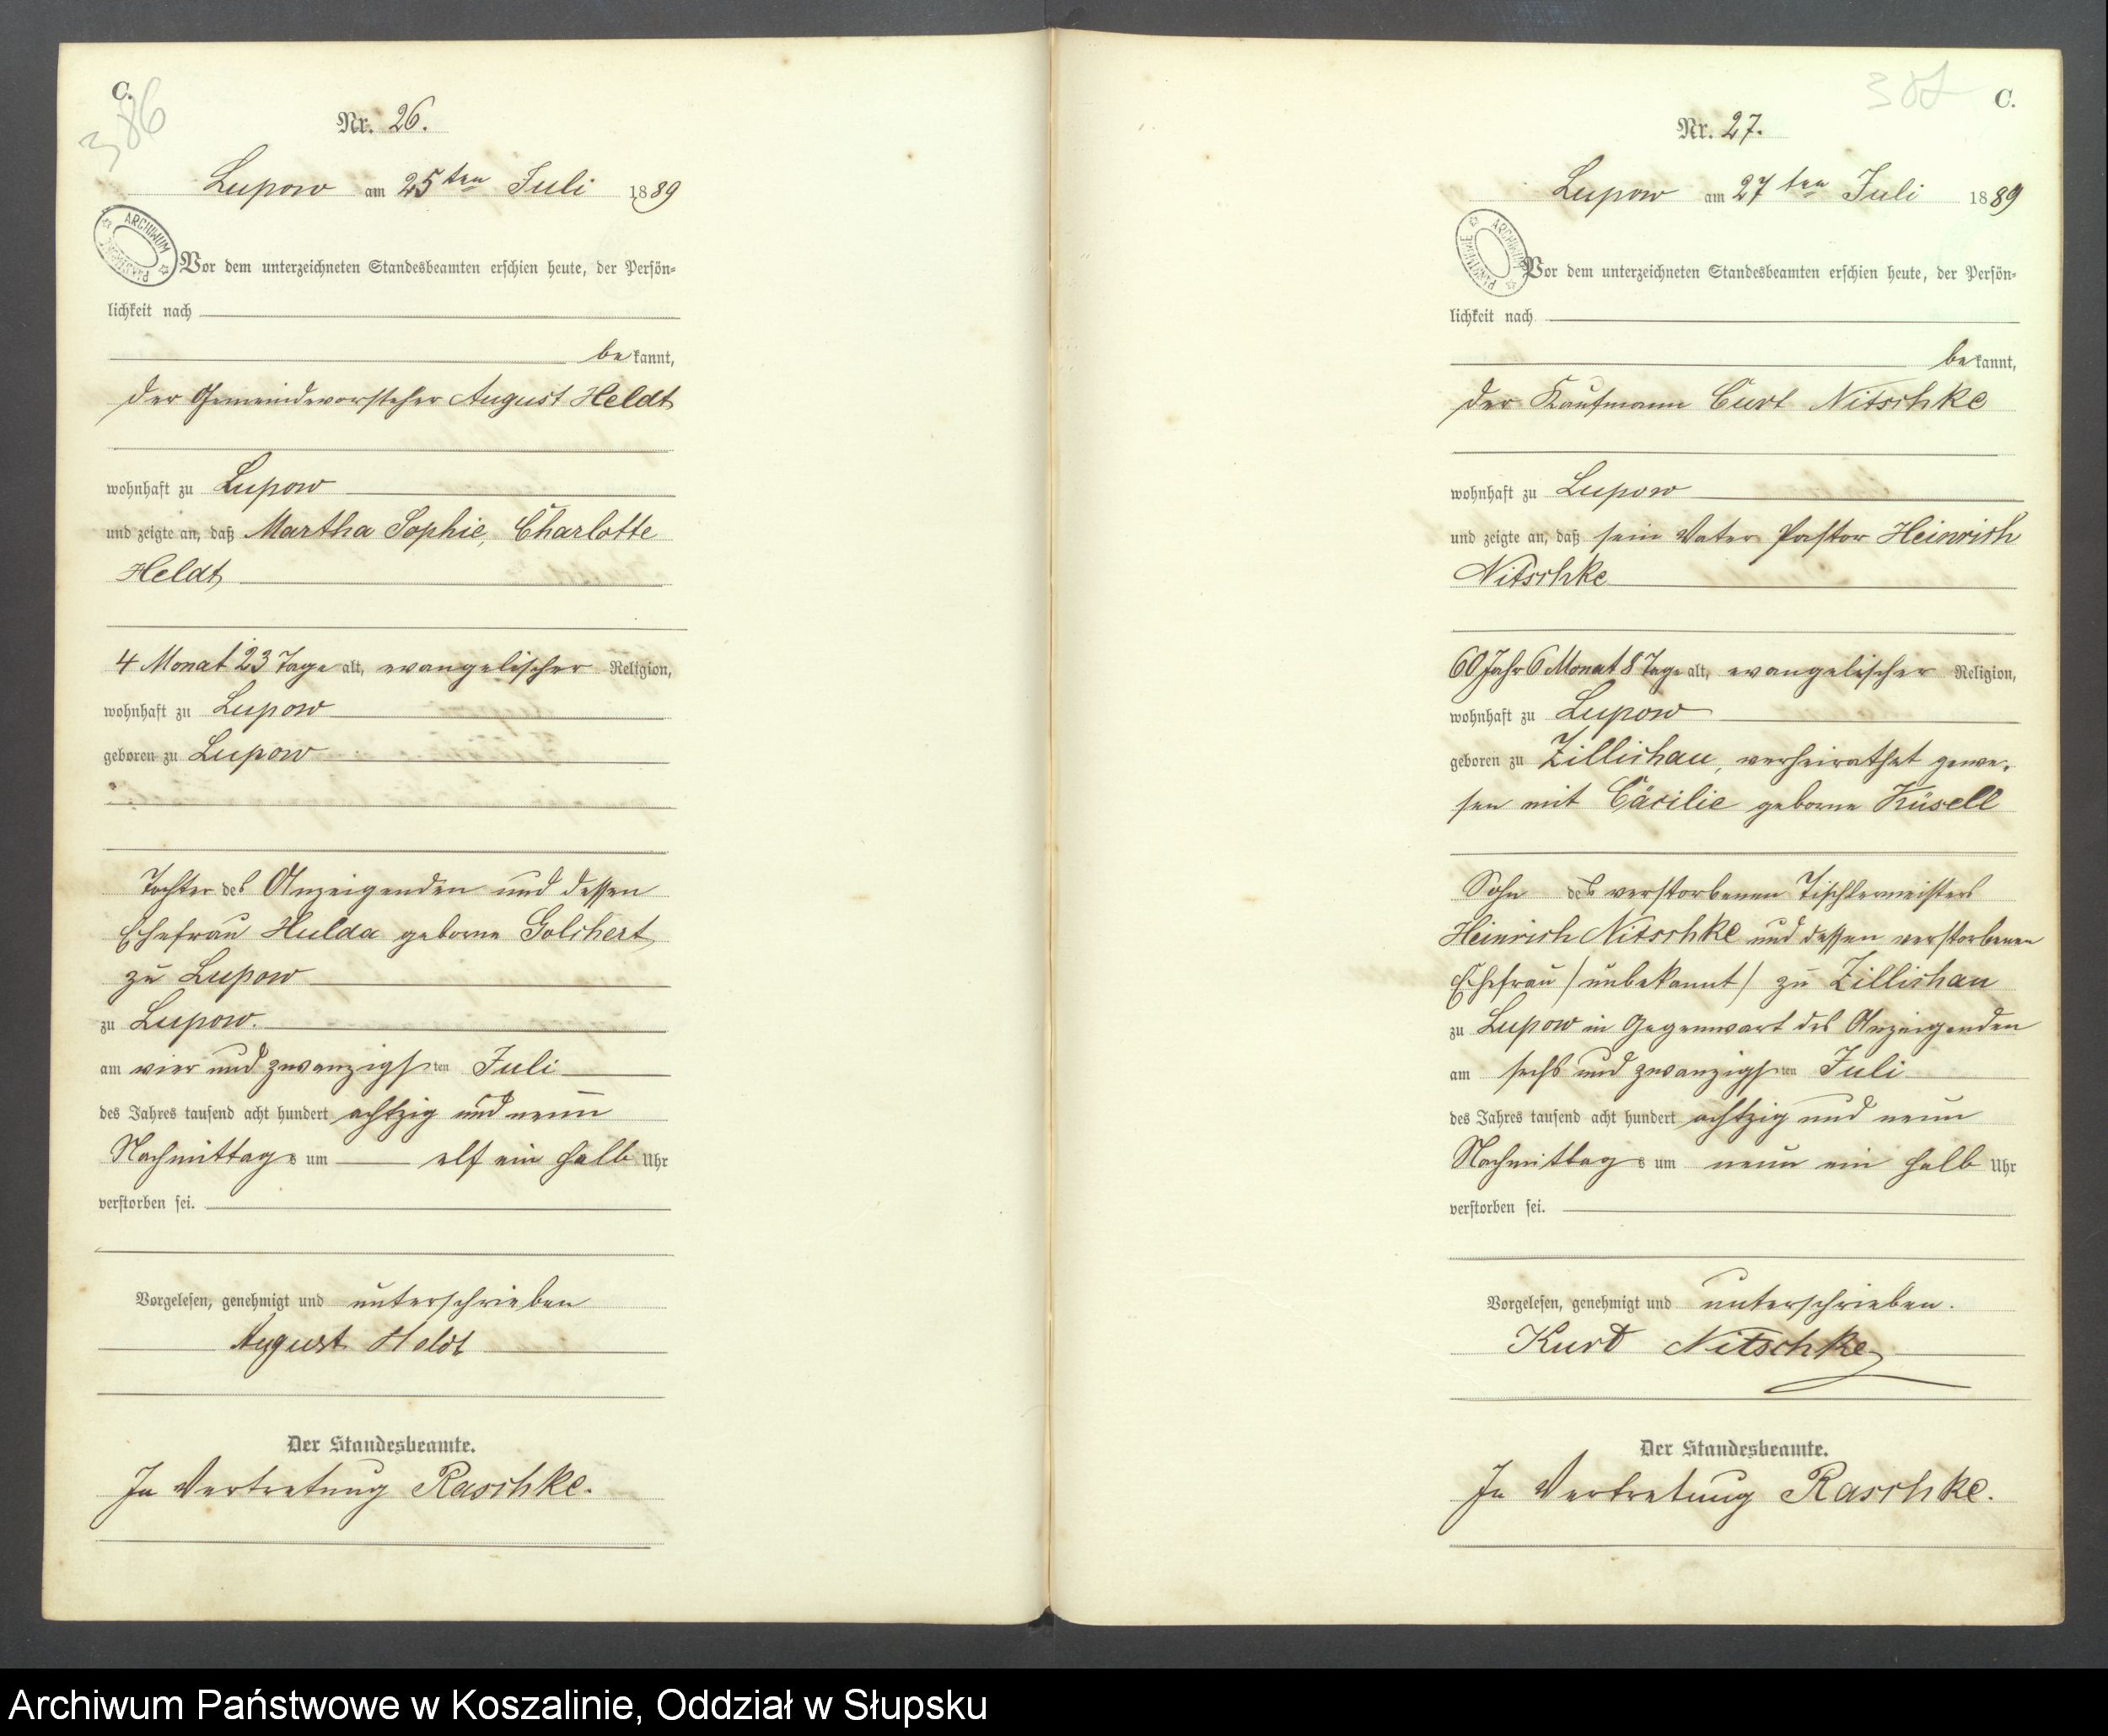 C.
386
Nr. 26.
Lupow am 25ten Juli 1889
ARCHIWUM PAŃSTWOWE
Vor dem unterzeichneten Standesbeamten erschien heute, der Persön=
lichkeit nach
bekannt,
der Gemeindevorsteher August Heldt
wohnhaft zu Lupow
und zeigte an, daß Martha Sophie, Charlotte
Heldt
4 Monat 23 Tage alt, evangelischer Religion,
wohnhaft zu Lupow
geboren zu Lupow
Tochter des Anzeigenden und dessen
Ehefrau Hulda geborne Golchert
zu Lupow
zu Lupow.
am vier und zwanzigsten Juli
des Jahres tausend acht hundert achtzig und neun
Nachmittags um elf ein halb Uhr
verstorben sei.
Vorgelesen, genehmigt und unterschrieben
August Heldt
Der Standesbeamte.
In Vertretung Raschke.
387 C.
Nr. 27.
Lupow am 27ten Juli 1889
ARCHIWUM PAŃSTWOWE
Vor dem unterzeichneten Standesbeamten erschien heute, der Persön=
lichkeit nach
bekannt,
der Kaufmann Curt Nitschke
wohnhaft zu Lupow
und zeigte an, daß sein Vater Pastor Heinrich
Nitschke
60 Jahr 6 Monat 8 Tage alt, evangelischer Religion,
wohnhaft zu Lupow
geboren zu Zillichau, verheirathet gewe-
sen mit Cäcilie geborne Küsell
Sohn des verstorbenen Tischlermeisters
Heinrich Nitschke und dessen verstorbenen
Ehefrau /unbekannt/ zu Zillichau
zu Lupow in Gegenwart des Anzeigenden
am sechs und zwanzigsten Juli
des Jahres tausend acht hundert achtzig und neun
Nachmittags um neun ein halb Uhr
verstorben sei.
Vorgelesen, genehmigt und unterschrieben.
Kurt Nitschke
Der Standesbeamte.
In Vertretung Raschke.
Archiwum Państwowe w Koszalinie, Oddział w Słupsku